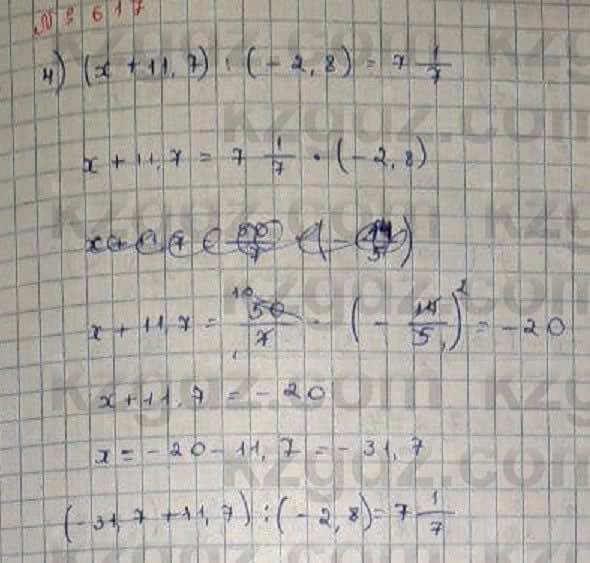 № 617
4) (x + 11,7) : (-2,8) = 7 1/7
x + 11,7 = 7 1/7 · (-2,8)
x + 11,7 = 50/7 · (-14/5) = -20
x + 11,7 = -20
x = -20 - 11,7 = -31,7
(-31,7 + 11,7) : (-2,8) = 7 1/7
kzgdz.com